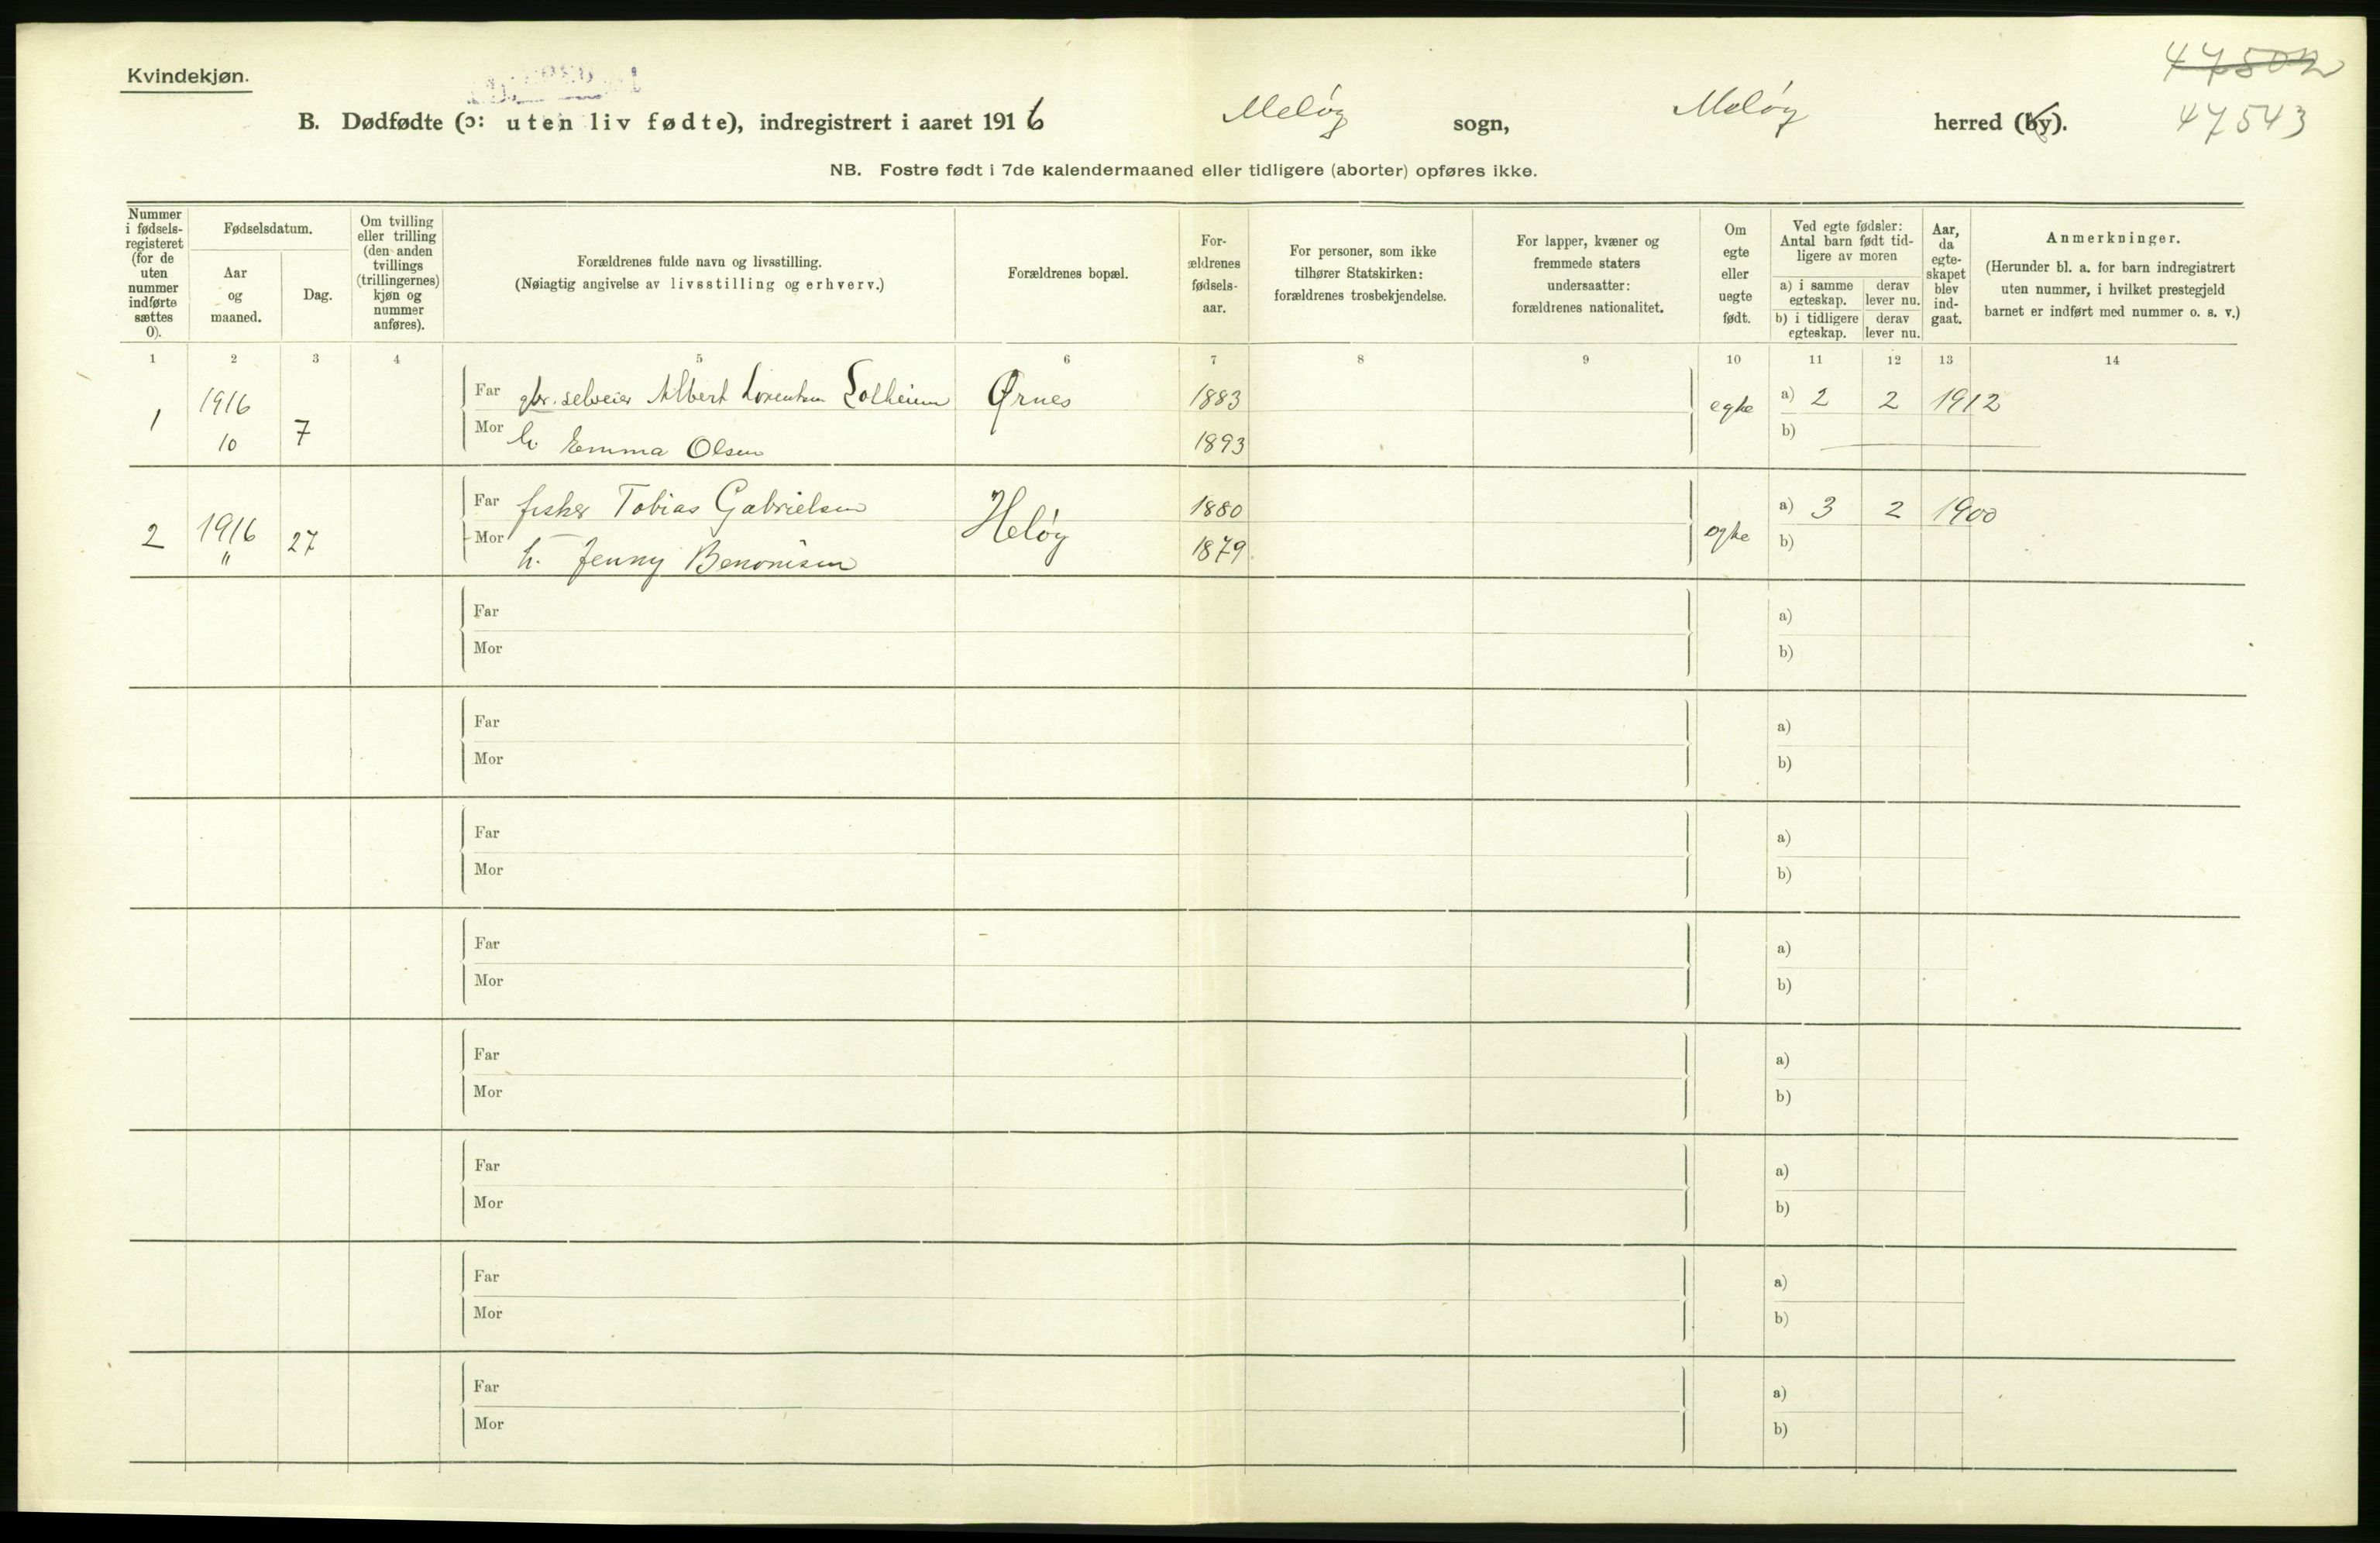 Kvindekjøn.
47502
B. Dødfødte (ɔ: uten liv fødte), indregistrert i aaret 1916 Meløy sogn, Meløy herred (by).
47543
NB. Fostre født i 7de kalendermaaned eller tidligere (aborter) opføres ikke.
Nummer i fødsels-registeret (for de uten nummer indførte sættes 0).
Fødselsdatum.
Aar og maaned.
Dag.
Om tvilling eller trilling (den anden tvillings (trillingernes) kjøn og nummer anføres).
Forældrenes fulde navn og livsstilling.
(Nøiagtig angivelse av livsstilling og erhverv.)
Forældrenes bopæl.
For-ældrenes fødsels-aar.
For personer, som ikke tilhører Statskirken: forældrenes trosbekjendelse.
For lapper, kvæner og fremmede staters undersaatter: forældrenes nationalitet.
Om egte eller uegte født.
Ved egte fødsler: Antal barn født tid-ligere av moren
a) i samme egteskap. derav lever nu.
b) i tidligere egteskap. derav lever nu.
Aar, da egte-skapet blev ind-gaat.
Anmerkninger.
(Herunder bl. a. for barn indregistrert uten nummer, i hvilket prestegjeld barnet er indført med nummer o. s. v.)
1 2 3 4 5 6 7 8 9 10 11 12 13 14
1 1916 10 7 Far gbr. selveier Albert Lorentsen Solheim Ørnes 1883 egte a) 2 2 1912
Mor h. Emma Olsen 1893 b)
2 1916 " 27 Far fisker Tobias Gabrielsen Meløy 1880 egte a) 3 2 1900
Mor h. Jenny Benonisen 1879 b)
Far a)
Mor b)
Far a)
Mor b)
Far a)
Mor b)
Far a)
Mor b)
Far a)
Mor b)
Far a)
Mor b)
Far a)
Mor b)
Far a)
Mor b)